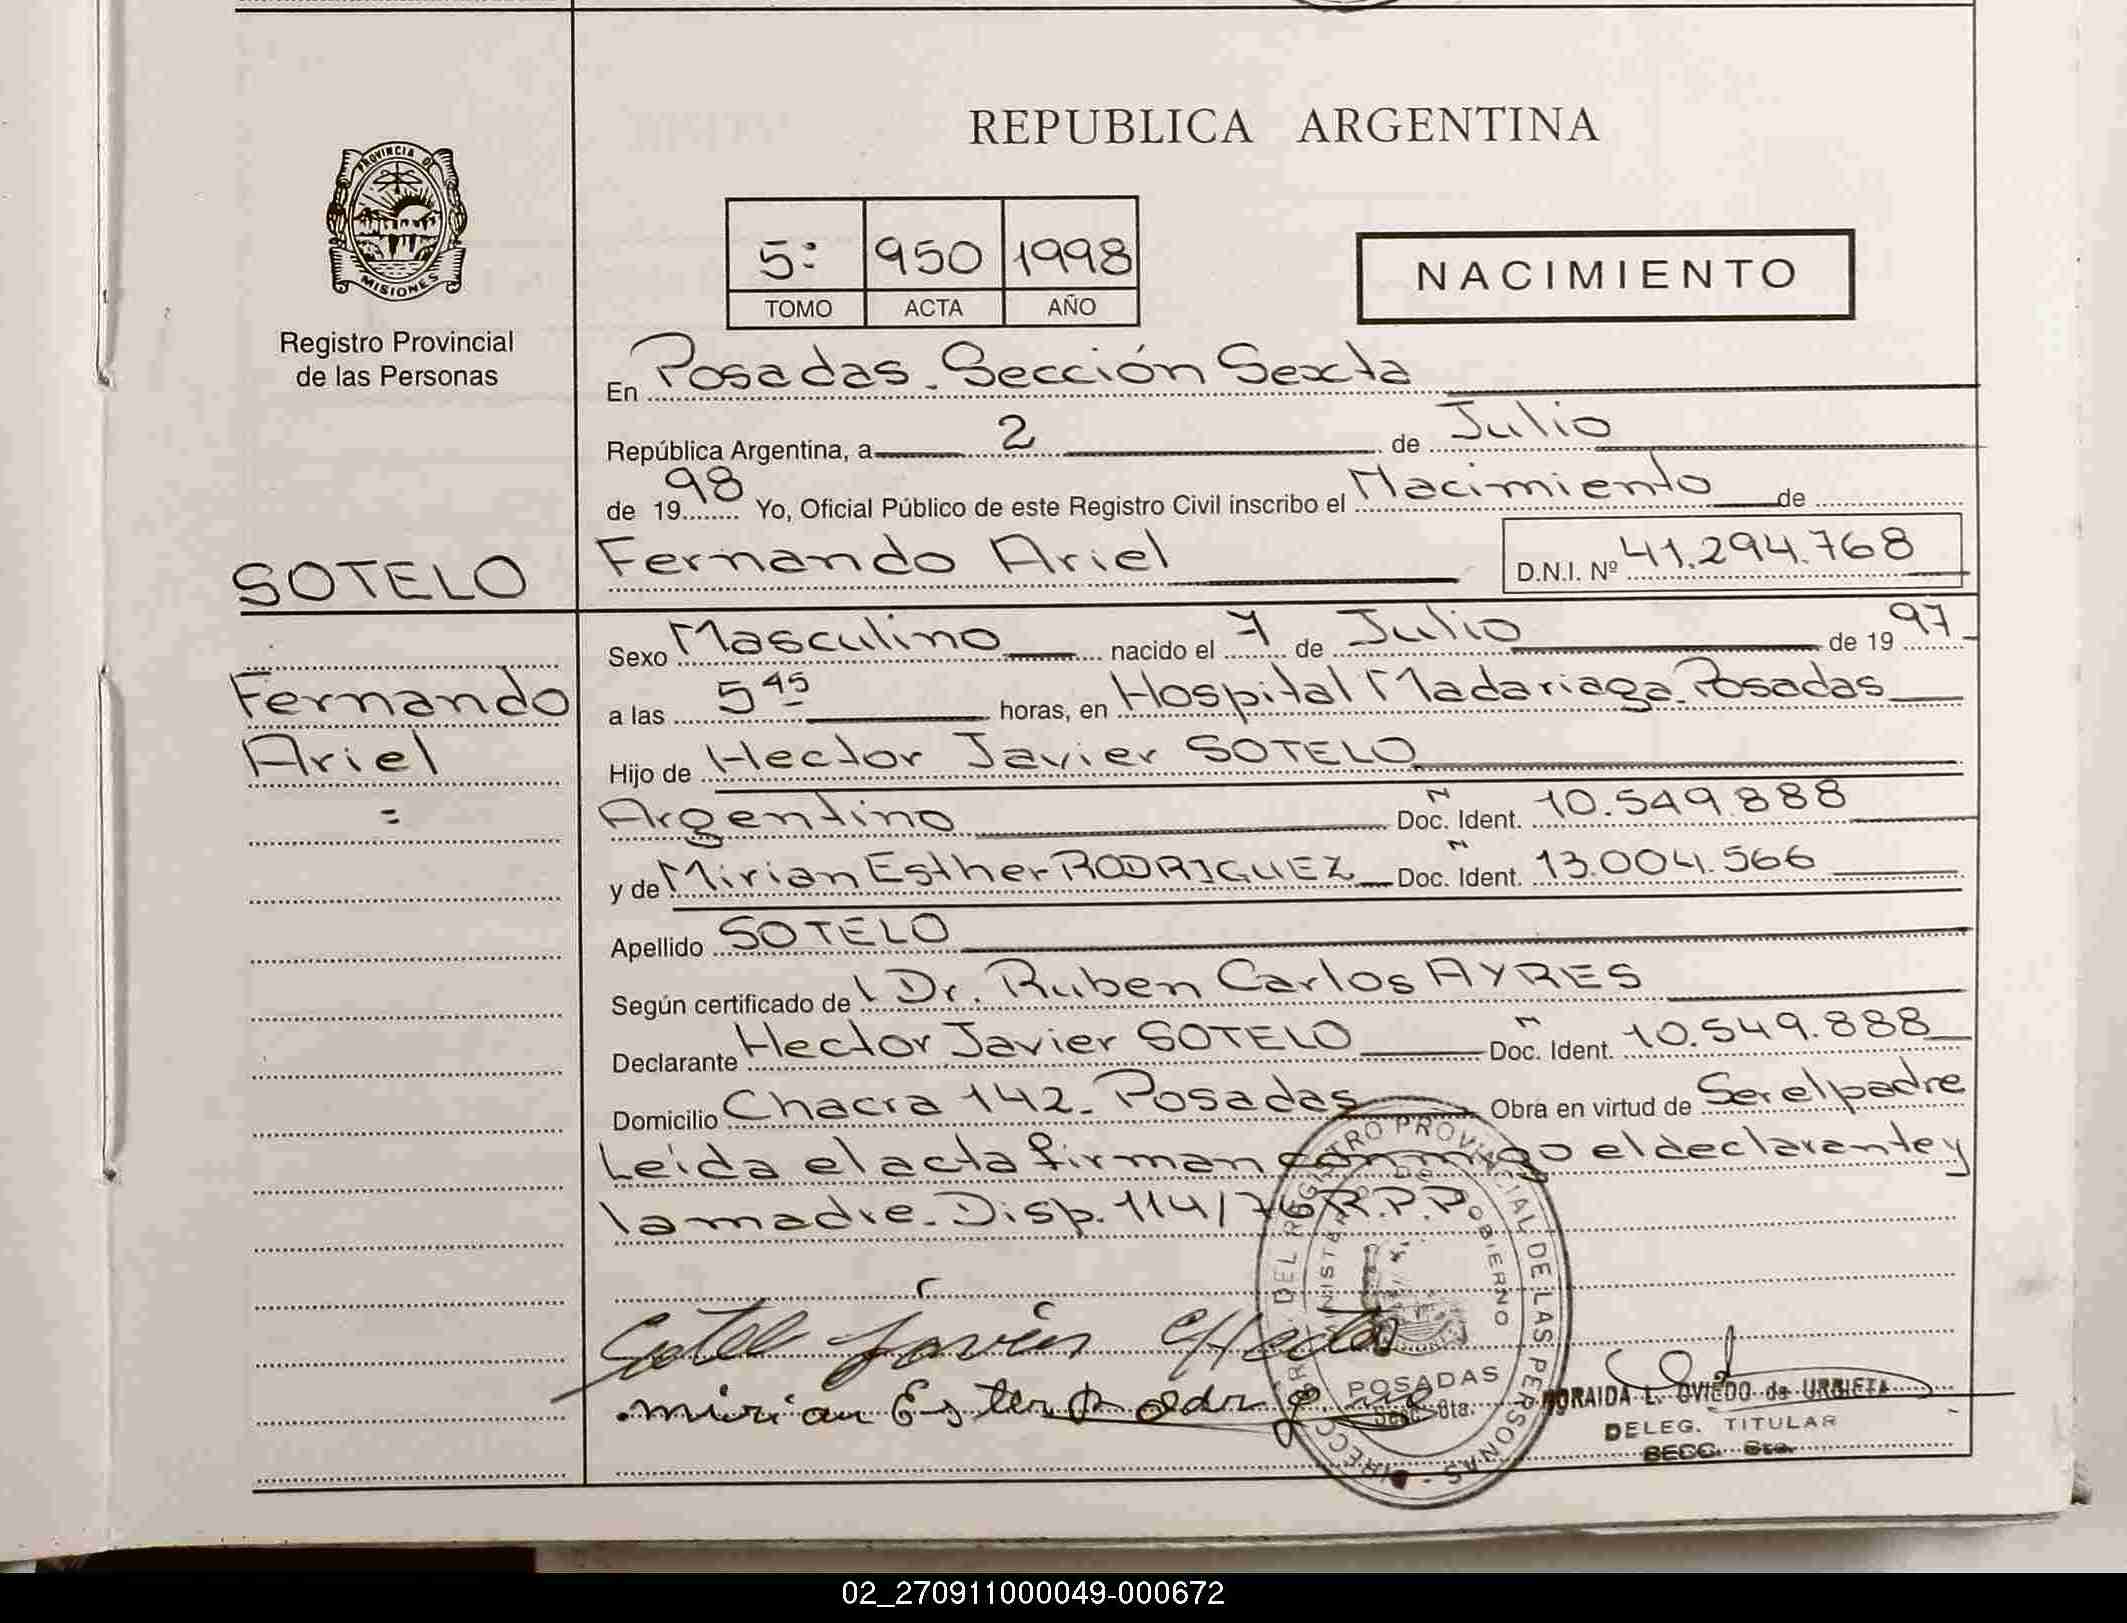 REPUBLICA ARGENTINA
PROVINCIA DE
MISIONES
Registro Provincial
de las Personas
5: 950 1998
TOMO ACTA AÑO
NACIMIENTO
En Posadas. Sección Sexta
República Argentina, a 2 de Julio
de 1998 Yo, Oficial Público de este Registro Civil inscribo el Nacimiento de
SOTELO
Fernando Ariel D.N.I. Nº 41.294.768
Sexo Masculino nacido el 7 de Julio de 1997
Fernando
Ariel
=
a las 5 45 horas, en Hospital Madariaga. Posadas
Hijo de Hector Javier SOTELO
Argentino Doc. N Ident. 10.549.888
y de Mirian Esther RODRIGUEZ Doc. N Ident. 13.004.566
Apellido SOTELO
Según certificado de Dr. Ruben Carlos AYRES
Declarante Hector Javier SOTELO Doc. N Ident. 10.549.888
Domicilio Chacra 142. Posadas Obra en virtud de Ser el padre
Leida el acta firman conmigo el declarante y
la madre. Disp. 114/76 R.P.P.
Sotelo Javier Hector
mirian Ester Rodriguez
DEL REGISTRO PROVINCIAL DE LAS PERSONAS
MINISTERIO DE GOBIERNO
POSADAS
Secc. 6ta.
NORAIDA L. OVIEDO de URBIETA
DELEG. TITULAR
SECC. 6ta.
02_270911000049-000672